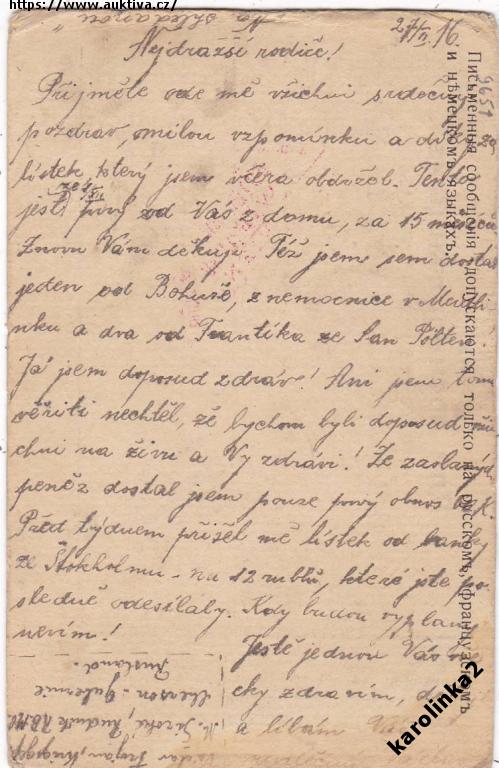 https://www.auktiva.cz/
"Na shledanou"
27/II. 16.
Nejdražší rodiče!
9651
Přijměte ode mě všichni srdečný
pozdrav, milou vzpomínku a díky za
lístek, který jsem včera obdržel. Tento
ze 4/XII
jest prvý od Vás z domu, za 15 měsíců
Znovu Vám děkuji. Též jsem sem dostal
jeden od Bohuše, z nemocnice v
a dva od Frantíka ze San Pölten.
Já jsem doposud zdráv! Ani jsem tomu
věřiti nechtěl, že bychom byli doposud vši-
chni na živu a Vy zdrávi! Ze zaslaných
peněz dostal jsem pouze prvý obnos
Před týdnem přišel mě lístek od banky
ze Štokholmu - na 12 rublů, které jste po-
sledně odesílaly. Kdy budou vyplaceny
nevím!
Ještě jednou Vás vše-
cky zdravím,
a líbám
Cherson - Gubernie
Rusland.
Письменныя сообщенія допускаются только на русскомъ, французскомъ
и нѣмецкомъ языкахъ.
karolinka2